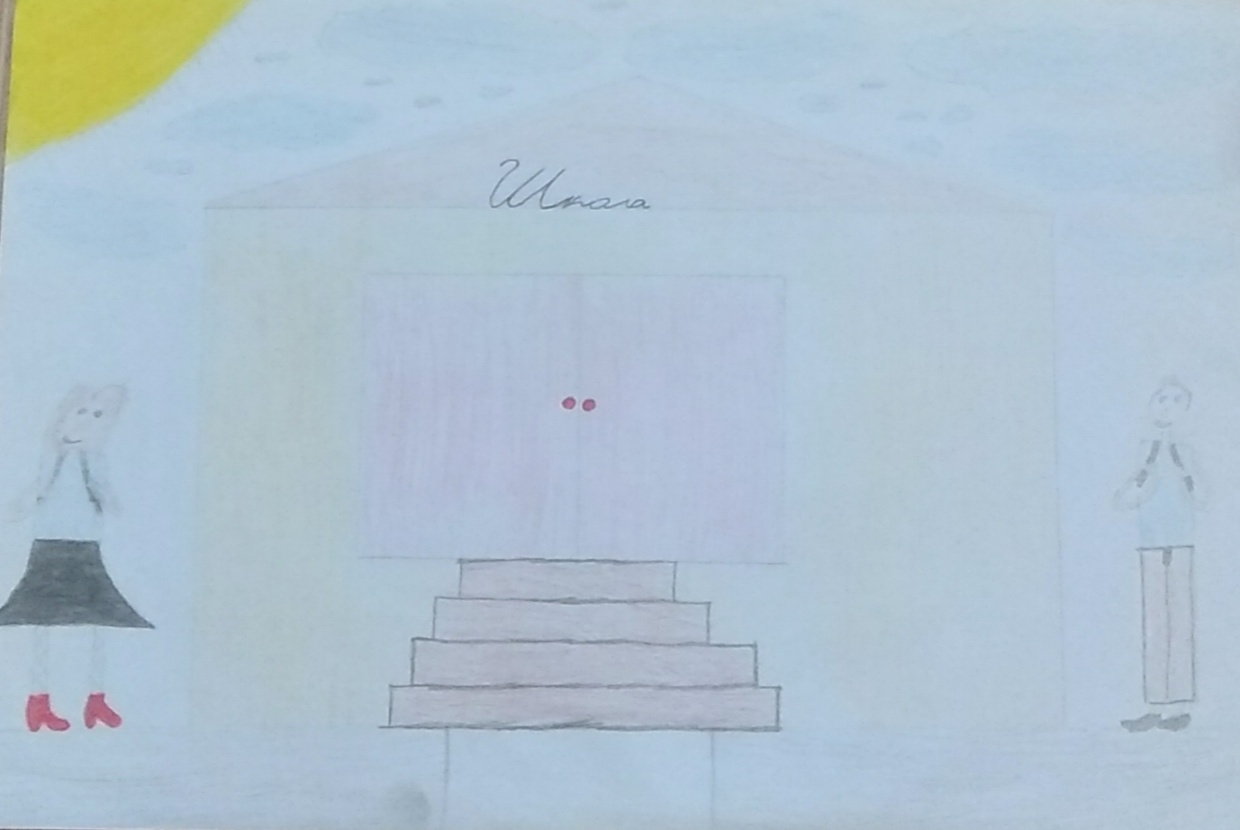 Школа